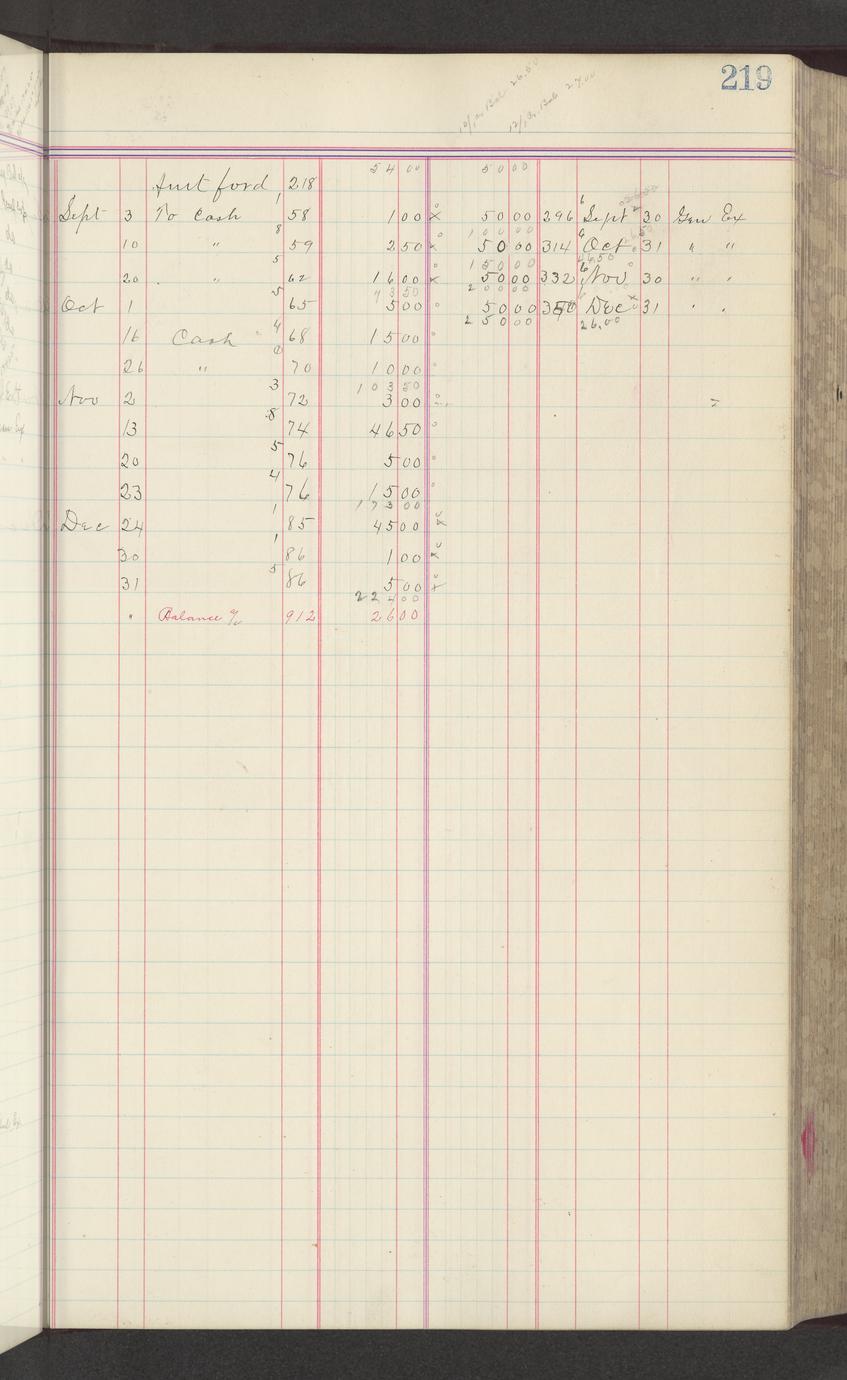 219
10/1 Dr. Bal. 26.50
12/1 Dr. Bal. 27.00
54 00 50 00
Amt ford 218
Sept 3 To Cash 1 58 1 00 x 50 00 296 6 Sept 30 Gen Ex
100 00
10 " 8 59 2 50 x 50 00 314 6 Oct 31 " "
150 00 46.50
20 " 5 62 16 00 x 50 00 332 6 Nov 30 " "
73 50 200 00
Oct 1 5 65 5 00 50 00 350 Dec 31 " "
250 00 26.00
16 Cash 4 68 15 00
26 " 70 10 00
103 50
Nov 2 3 72 3 00
13 8 74 46 50
20 5 76 5 00
23 4 76 15 00
173 00
Dec 24 1 85 45 00 x
30 1 86 1 00 x
31 5 86 5 00 x
224 00
" Balance % 912 26 00